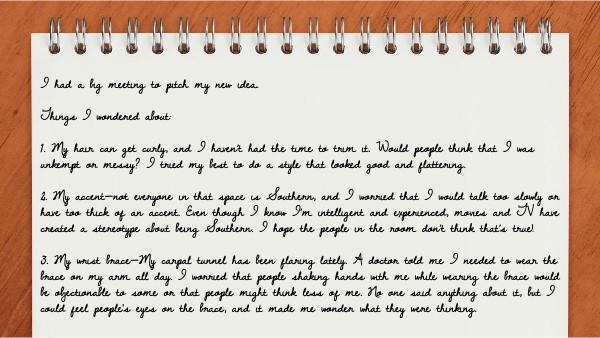 I had a big meeting to pitch my new idea.
Things I wondered about:
1. My hair can get curly, and I haven't had the time to trim it. Would people think that I was
unkempt or messy? I tried my best to do a style that looked good and flattering.
2. My accent—not everyone in that space is Southern, and I worried that I would talk too slowly or
have too thick of an accent. Even though I know I'm intelligent and experienced, movies and TV have
created a stereotype about being Southern. I hope the people in the room don't think that's true!
3. My wrist brace—My carpal tunnel has been flaring lately. A doctor told me I needed to wear the
brace on my arm all day. I worried that people shaking hands wth me while wearing the brace would
be objectionable to some or that people might think less of me. No one said anything about it, but I
could feel people's eyes on the brace, and it made me wonder what they were thinking.